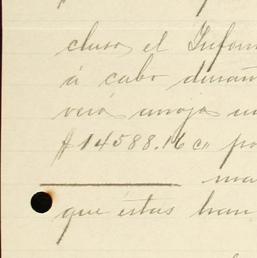 clusa el Infor
á cabo duran
verá arroja un
$14588.16 cs po
ma
que éstas han